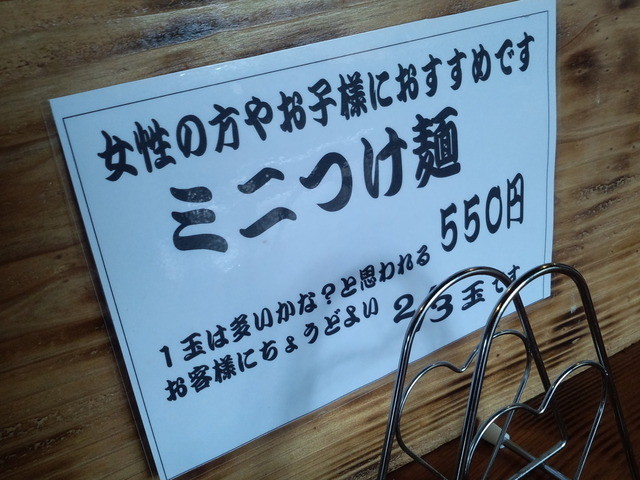 女性の方やお子様におすすめです
ミニつけ麺
550円
1玉は多いかな?と思われる
お客様にちょうどよい 2/3玉です